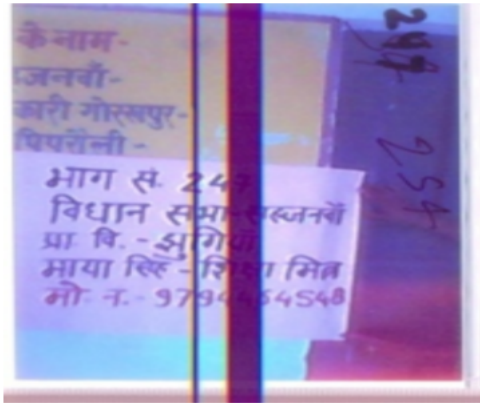 के नाम-
जनवाँ-
कारी गोरखपुर-
पिपरौली -
भाग सं. 247
विधान सभा-सहजनवाँ
प्रा वि. - झुगियाँ
माया सिंह - शिक्षा मित्र
मो. न. -
247
254